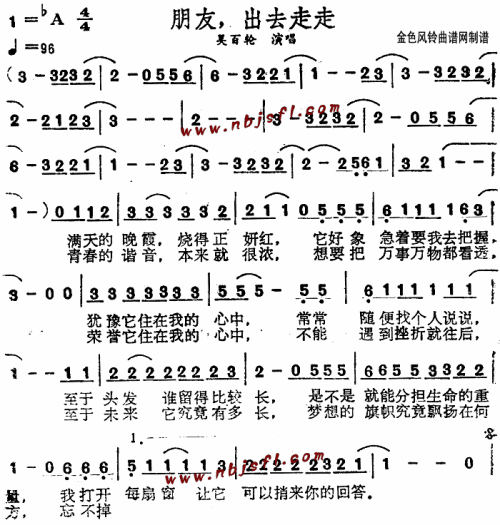 1=♭A 4/4
♩=96
朋友，出去走走
吴百轮 演唱
金色风铃曲谱网制谱
(3-3232|2-0556|6-3221|1--23|3-3232|
2-2123|3---|2---|3-3232|2-0556|
6-3221|1--23|3-3232|2-2561|321-|
1-)0112|333332|211 0555|6111163|
满天的晚霞，烧得正妍红，它好象急着要我去把握，
青春的谐音，本来就很浓，想要把万事万物都看透，
3-00|3333333|555-55|6111111|
犹豫它住在我的心中，常常随便找个人说说，
荣誉它住在我的心中，不能遇到挫折就往后，
1--11|2222222|2-0555|66553332|
至于头发谁留得比较长，是不是就能分担生命的重
至于未来它究竟有多长，梦想的旗帜究竟飘扬在何
1.
1-0666|5111113|22222221|1---|
量，我打开每扇窗让它可以捎来你的回答。
方，忘不掉
www.nbjsfl.com
www.nbjsfl.com